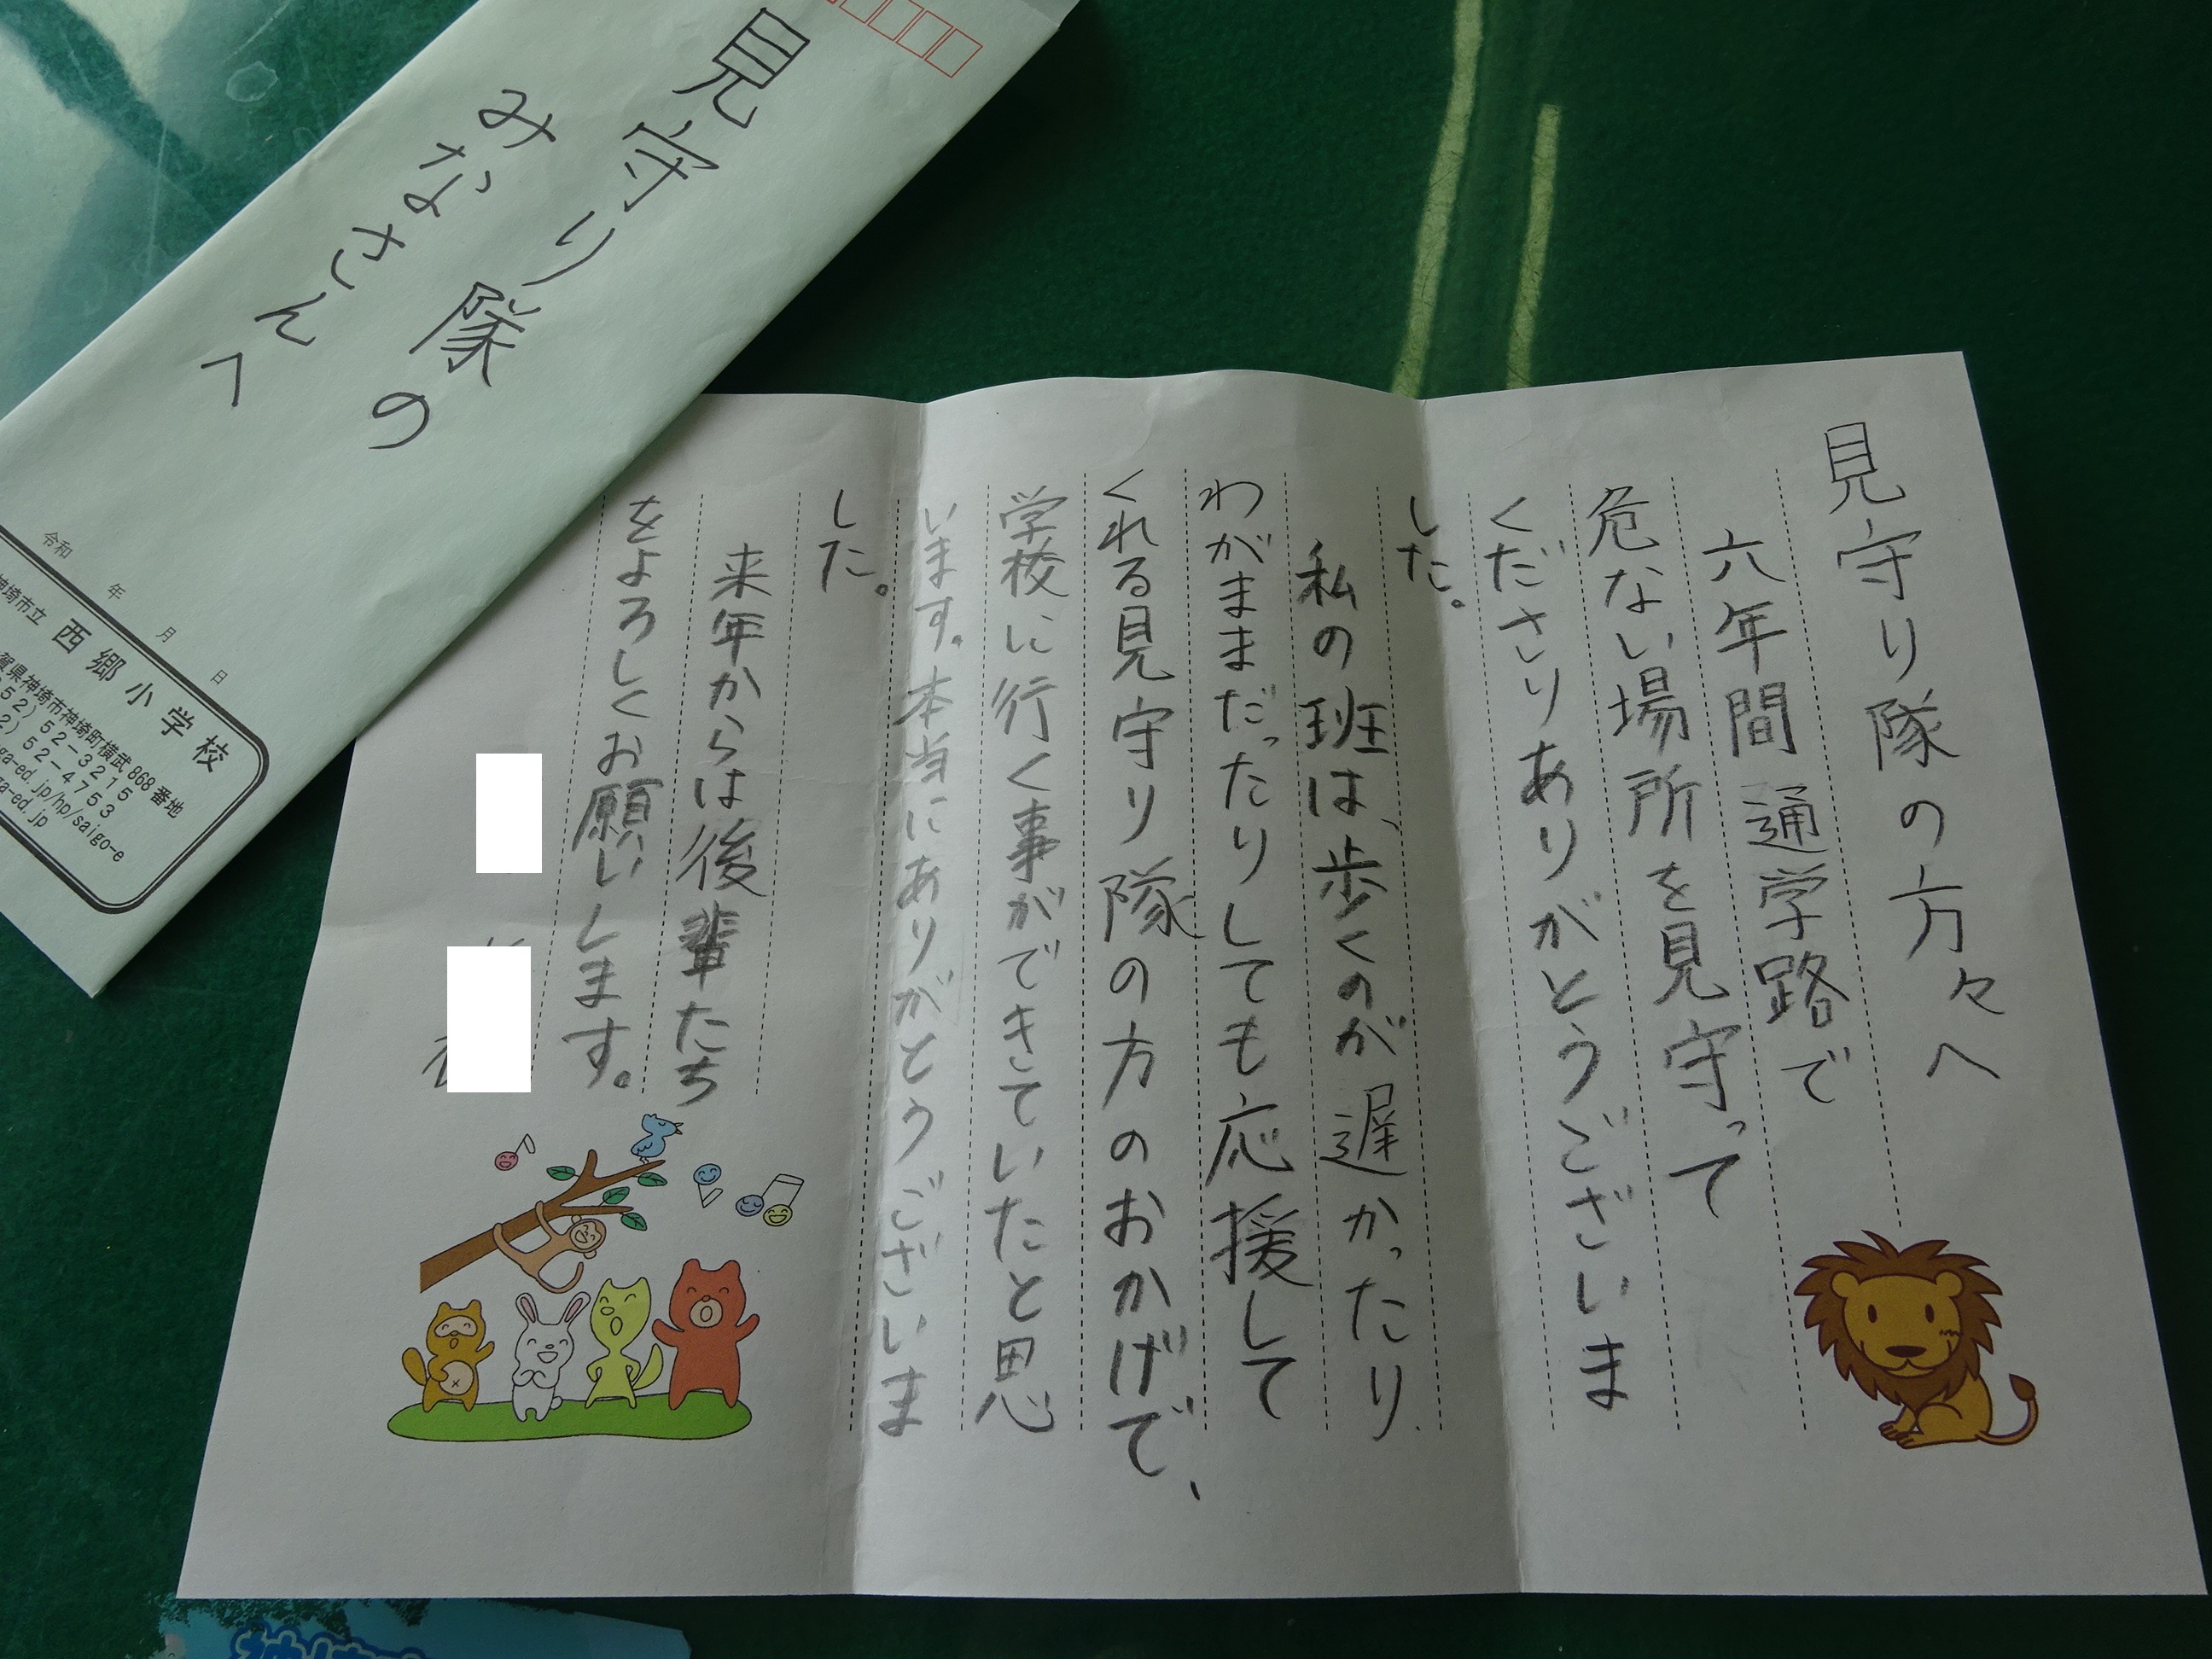 見守り隊の
みなさんへ
令和　年　月　日
神埼市立 西郷小学校
賀県神埼市神埼町横武868番地
52）52-3215
2）52-4753
ga-ed.jp/hp/saigo-e
a-ed.jp
見守り隊の方々へ
六年間通学路で
危ない場所を見守って
くださりありがとうございま
した。
私の班は、歩くのが遅かったり
わがままだったりしても応援して
くれる見守り隊の方のおかげで、
学校に行く事ができていたと思
います。本当にありがとうございま
した。
来年からは後輩たち
をよろしくお願いします。